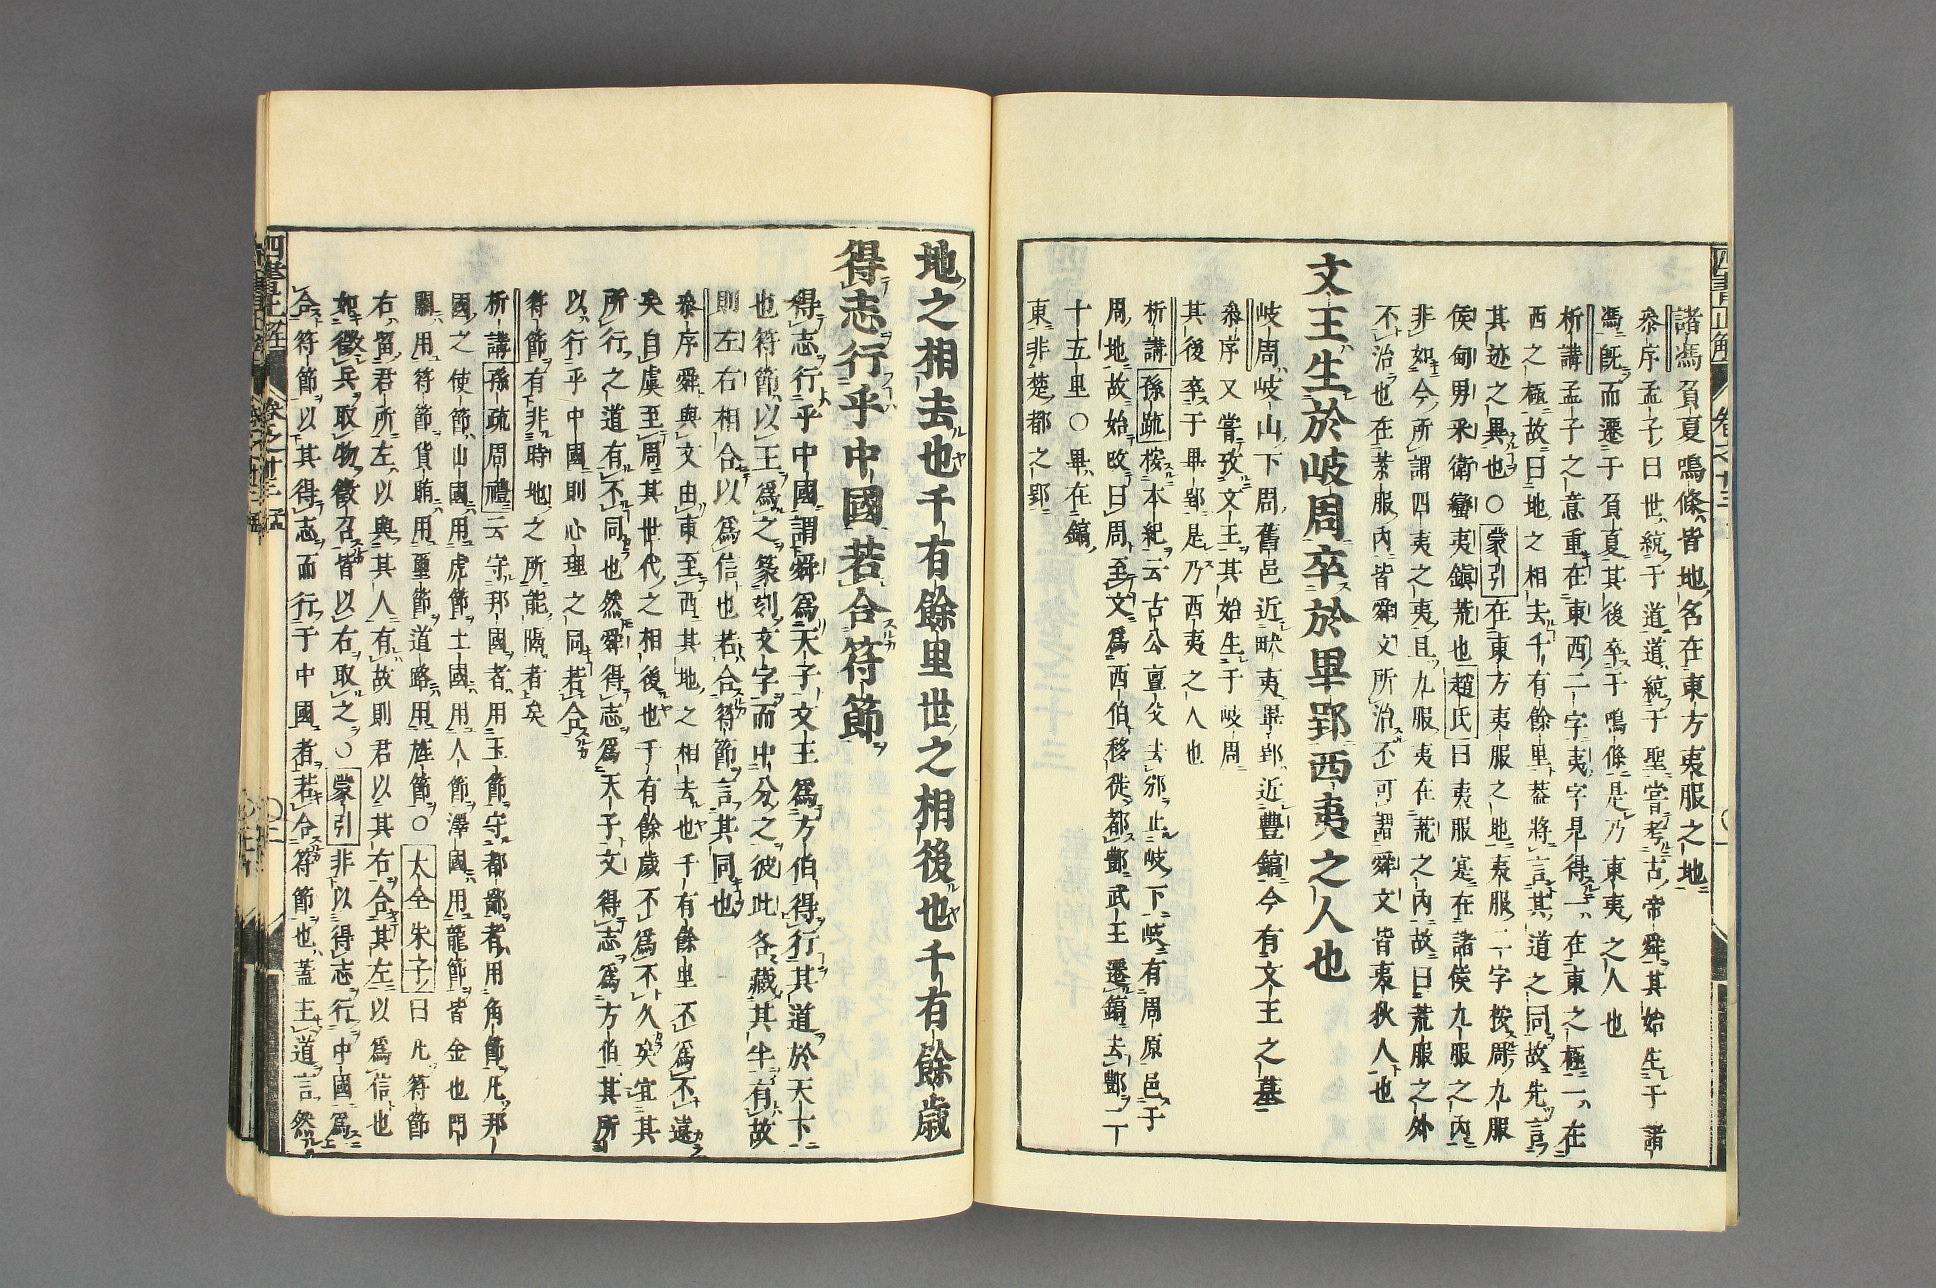 諸馮負夏鳴條皆地名在東方夷服之地
參序孟子曰世統于道道統于聖嘗考古帝舜其始生于諸
馮既而遷于負夏其後卒于鳴條是乃東夷之人也
析講孟子之意重在東西二字夷字見得一在東之極一在
西之極故曰地之相去千有餘里蓋將言其道之同故先言
其迹之異也○蒙引在東方夷服之地夷服二字按周九服
侯甸男采衛蠻夷鎮荒也趙氏曰夷服寔在諸侯九服之内
非如今所謂四夷之夷且九服夷在荒之内故曰荒服之外
不治也在荒服内皆舜文所治不可謂舜文皆夷狄人也
文王生於岐周卒於畢郢西夷之人也
岐周岐山下周舊邑近畎夷畢郢近豐鎬今有文王之墓
參序又嘗攷文王其始生于岐周
其後卒于畢郢是乃西夷之人也
析講孫疏按本紀云古公亶父去邠止岐下岐有周原邑于
周地故始改曰周至文爲西伯移徙都酆武王遷鎬去酆二
十五里○畢在鎬
東非楚都之郢
四書正解 卷之廿三
地之相去也千有餘里世之相後也千有餘歲
得志行乎中國若合符節
得志行乎中國謂舜爲天子文王爲方伯得行其道於天下
也符節以玉爲之篆刻文字而中分之彼此各藏其半有故
則左右相合以爲信也若合符節言其同也
參序舜與文由東至西其地之相去也千有餘里不爲不遠
矣自虞至周其世代之相後也千有餘歲不爲不久矣宜其
所行之道有不同也然舜得志爲天子文得志爲方伯其所
以行乎中國則心理之同若合
符節有非時地之所能隔者矣
析講孫疏周禮云守邦國者用玉節守都鄙者用角節凡邦
國之使節山國用虎節土國用人節澤國用龍節皆金也門
關用符節貨賄用璽節道路用旌節○大全朱子曰凡符節
右留君所左以與其人有故則君以其右合其左以爲信也
如徵兵取物徵召皆以右取之○蒙引非以得志行中國爲
合符節以其得志而行于中國者若合符節也蓋主道言然
四書正解 卷之廿三 孟